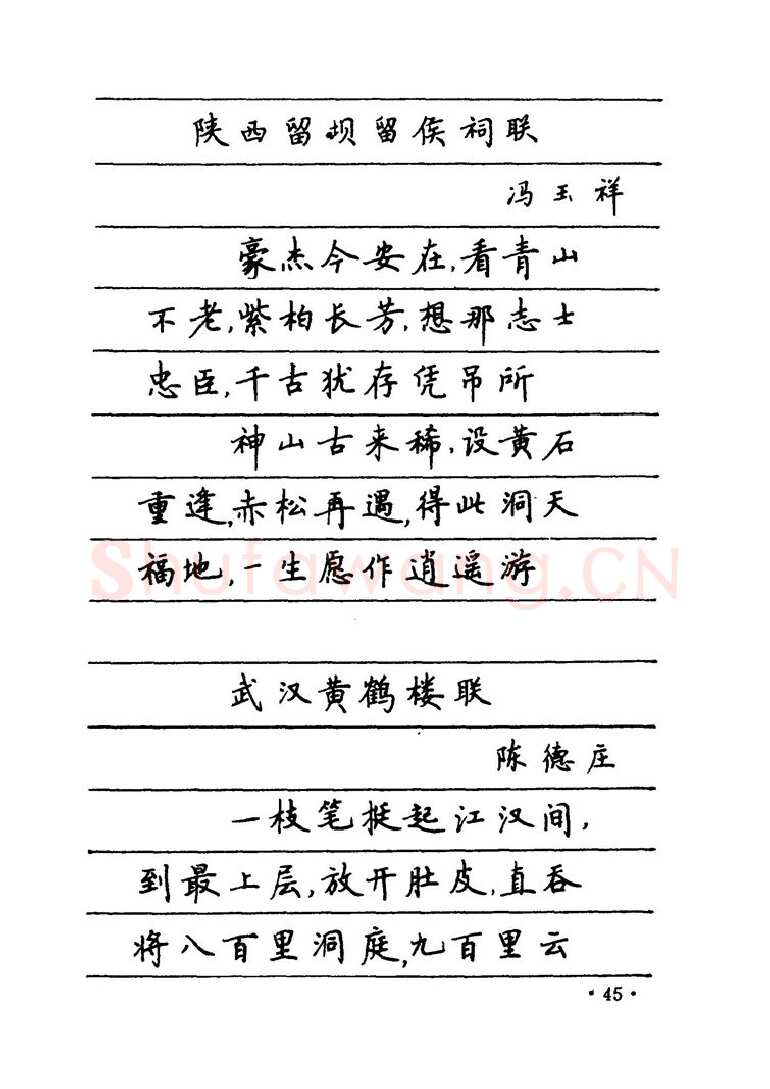 陕西留坝留侯祠联
冯玉祥
豪杰今安在,看青山
不老,紫柏长芳,想那志士
忠臣,千古犹存凭吊所
神山古来稀,设黄石
重逢,赤松再遇,得此洞天
福地,一生愿作逍遥游
Shufawang.CN
武汉黄鹤楼联
陈德庄
一枝笔挺起江汉间,
到最上层,放开肚皮,直吞
将八百里洞庭,九百里云
·45·